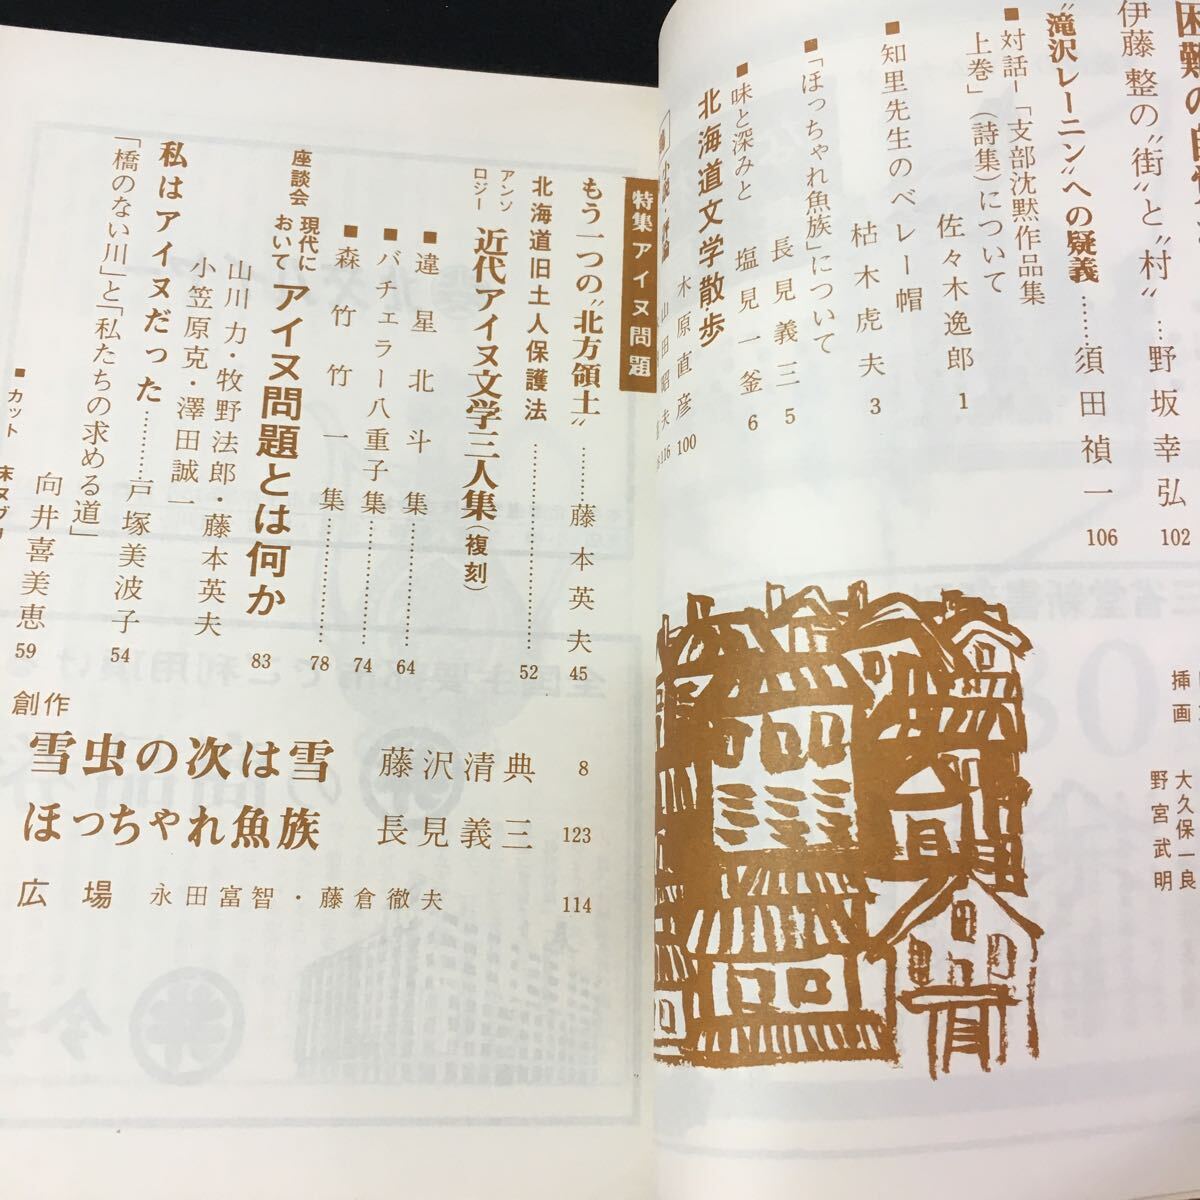 伊藤整の〝街〟と〝村〟…野坂幸弘 102
〝滝沢レーニン〟への疑義……須田禎一 106
■対話-「支部沈黙作品集
上巻」(詩集)について
佐々木逸郎 1
■知里先生のベレー帽
枯木虎夫 3
■「ほっちゃれ魚族」について
長見義三 5
■味と深みと 塩見一釜 6
北海道文学散歩
木原直彦 100
挿画
大久保一良
野宮武明
特集アイヌ問題
もう一つの〝北方領土〟……藤本英夫 45
北海道旧土人保護法……52
アンソロジー 近代アイヌ文学三人集(複刻)
■違星北斗集……64
■バチェラー八重子集……74
■森竹竹一集……78
座談会 現代において アイヌ問題とは何か 83
山川力・牧野法郎・藤本英夫
小笠原克・澤田誠一
私はアイヌだった……戸塚美波子 54
「橋のない川」と「私たちの求める道」
向井喜美恵 59
■カット
創作
雪虫の次は雪 藤沢清典 8
ほっちゃれ魚族 長見義三 123
広場 永田富智・藤倉徹夫 114